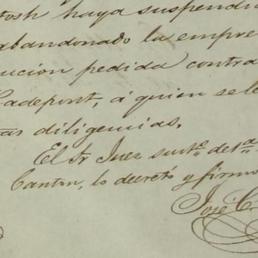 tosh haya suspendi
abandonado la empre
ución pedida contra
Ladepont, á quien se le
tas diligencias.
El Sr Juez sustº del
Canton, lo decretó y firmo
José C